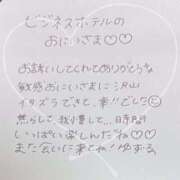 ビジネスホテルの
おにいさま♡♡
お誘いしてくれてありがとうな
敏感おにいさまに沢山
イタズラできて、幸せでした☺
焦らして我慢して…時間
いっぱい楽しんだね♡♡
また会いに来てね！ゆずる